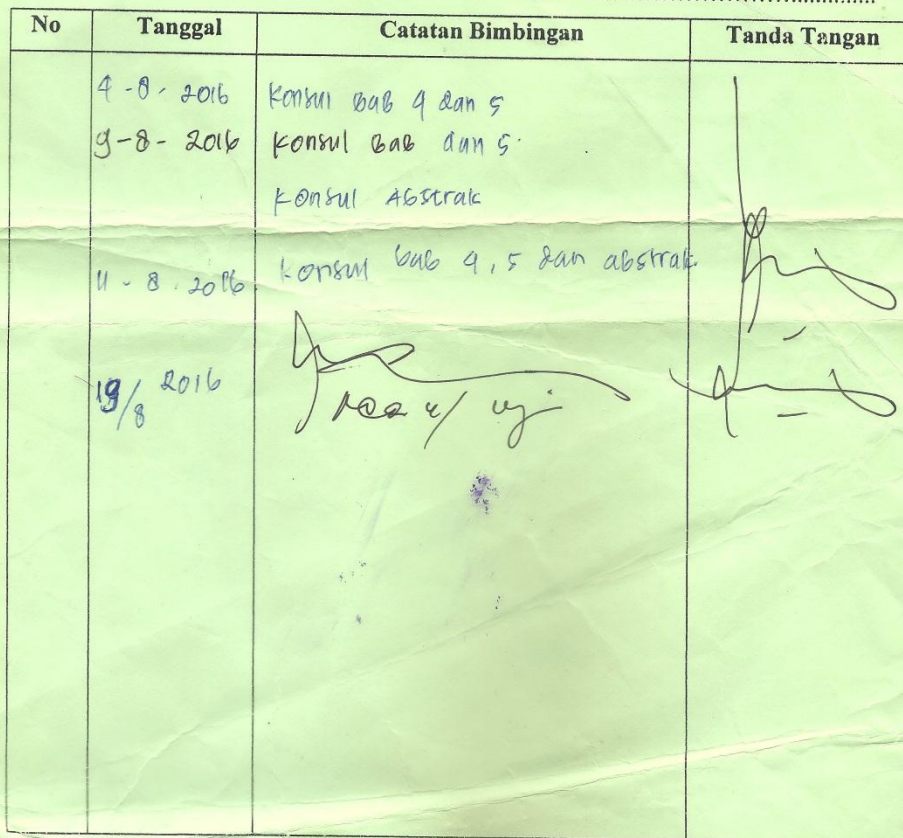 No Tanggal Catatan Bimbingan Tanda Tangan
4-8-2016 Konsul BAB 4 dan 5
9-8-2016 Konsul BAB dan 5.
Konsul Abstrak
11-8-2016 Konsul bab 4,5 dan abstrak
19/8 2016